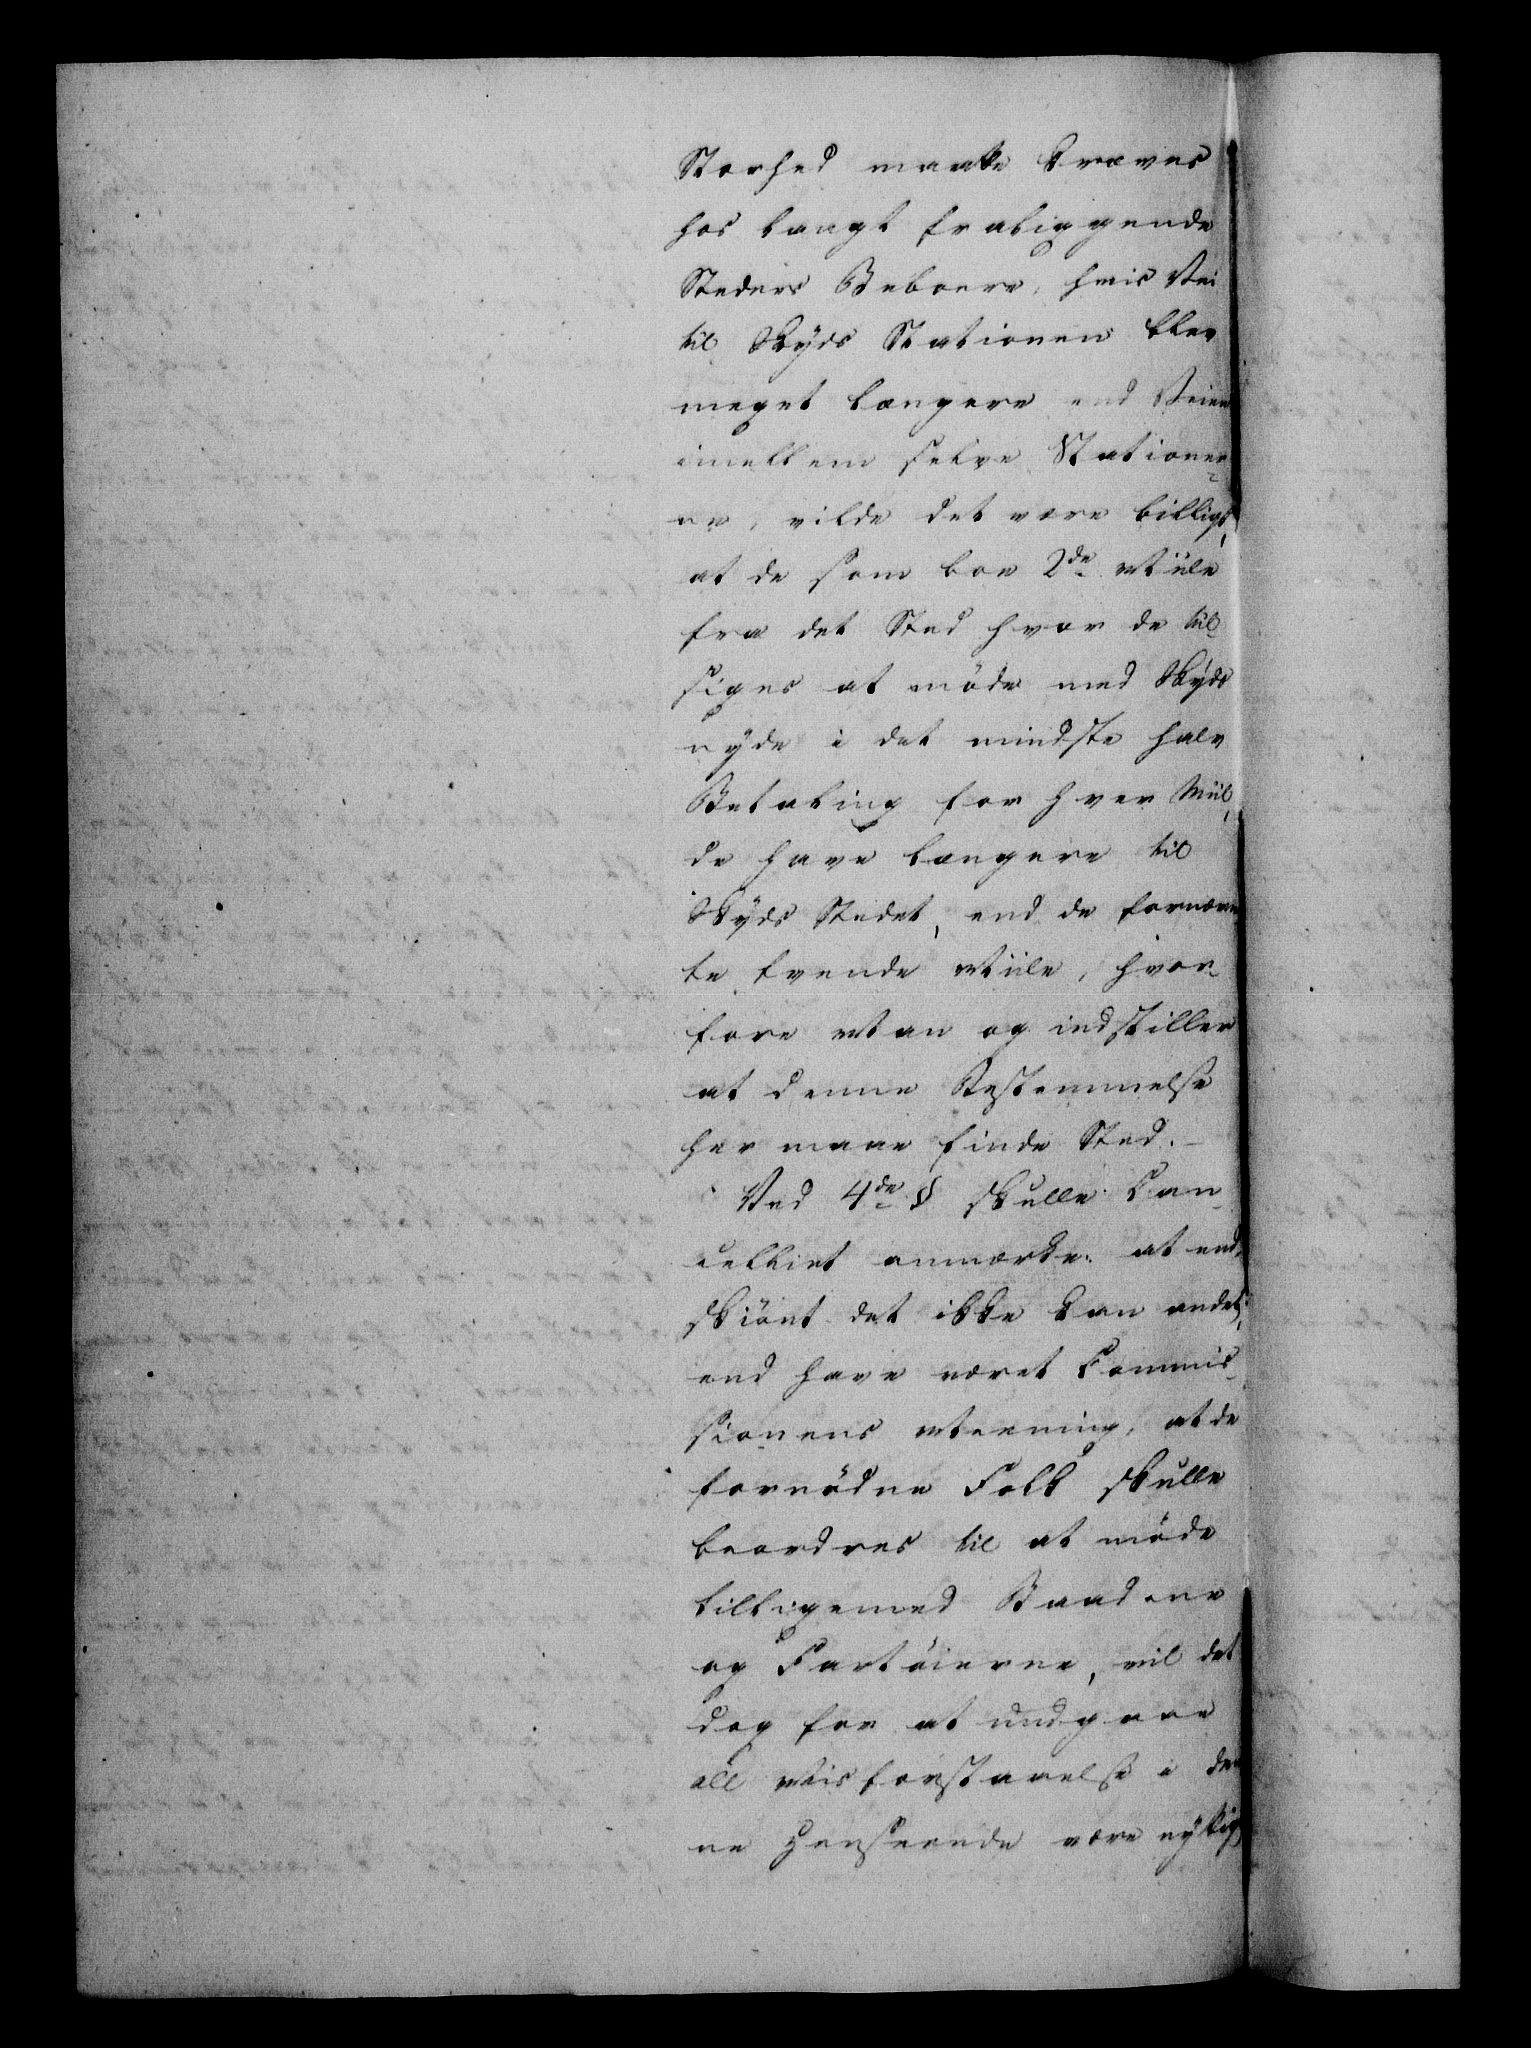 Storhed maatte kræves
hos langt fraliggende
Steders Beboere, hvis Vei
til Skyds Stationen blev
meget længere end Veien
imellem selve Stationer-
ne, vilde det være billigt,
at de som boe 2de Miile
fra det Sted hvor de til-
siges at møde med Skyds
nyde i det mindste halv
Betaling for hver Miil,
de have længere til
Skyds Stedet, end de fornævn
te tvende Miile, hvor-
fore Man og indstiller
at denne Bestemmelse
her maae finde Sted. -
Ved 4de § skulle Can-
celliet anmærke: at end-
skiönt det ikke kan andet,
end have været Commis-
sionens Meening, at de
fornödne Folk skulle
beordres til at möde
tilligemed Baadene
og Fartöierne, vil det
dog for at undgaae
all Misforstaaelse i den
ne Henseende være nyttig,